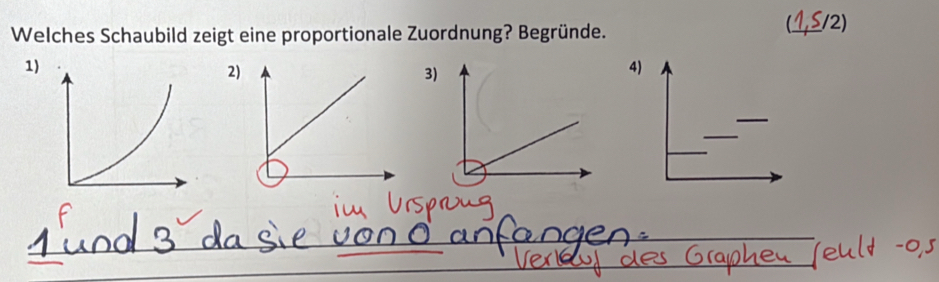 (1,5/2)
Welches Schaubild zeigt eine proportionale Zuordnung? Begründe.
1) 2) 3) 4)
f im Ursprung
1 und 3 ✓ da sie von 0 anfangen.
Verlauf des Graphen fehlt -0,5